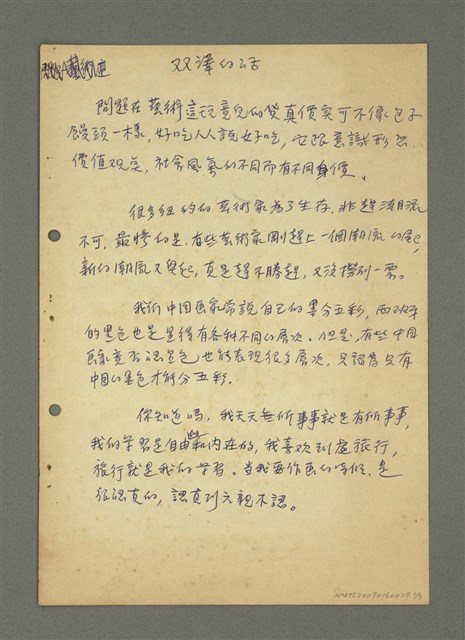 双譯的話
問題在藝術這玩意兒的貨真價实可不像包子
饅頭一樣，好吃人人說好吃，也跟意識形态
價值观矣，社会風氣的不同而有不同身價。
很多紐約的芸術家為了生存，非趕潮流
不可，最慘的是，有些芸術家剛趕上一個潮流的尾，
新的潮流又兴起，真是趕不勝趕，又沒撈到一票。
我们中国画家常說自己的墨分五彩，西班牙
的黑色也是显得有各种不同的層次。但是，有些中国
畫家竟否認黑色也能表現很多層次，只認為只有
中国的墨色才能分五彩。
你知道嗎，我天天無所事事就是有所事事，
我的学習是自由和内在的，我喜欢到處旅行，
旅行就是我的学習。当我要作画的時候，是
很認真的，認真到六親不認。